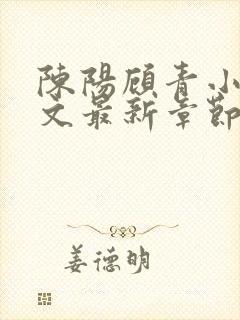 陳陽顧青.小
文最新章節
姜德明